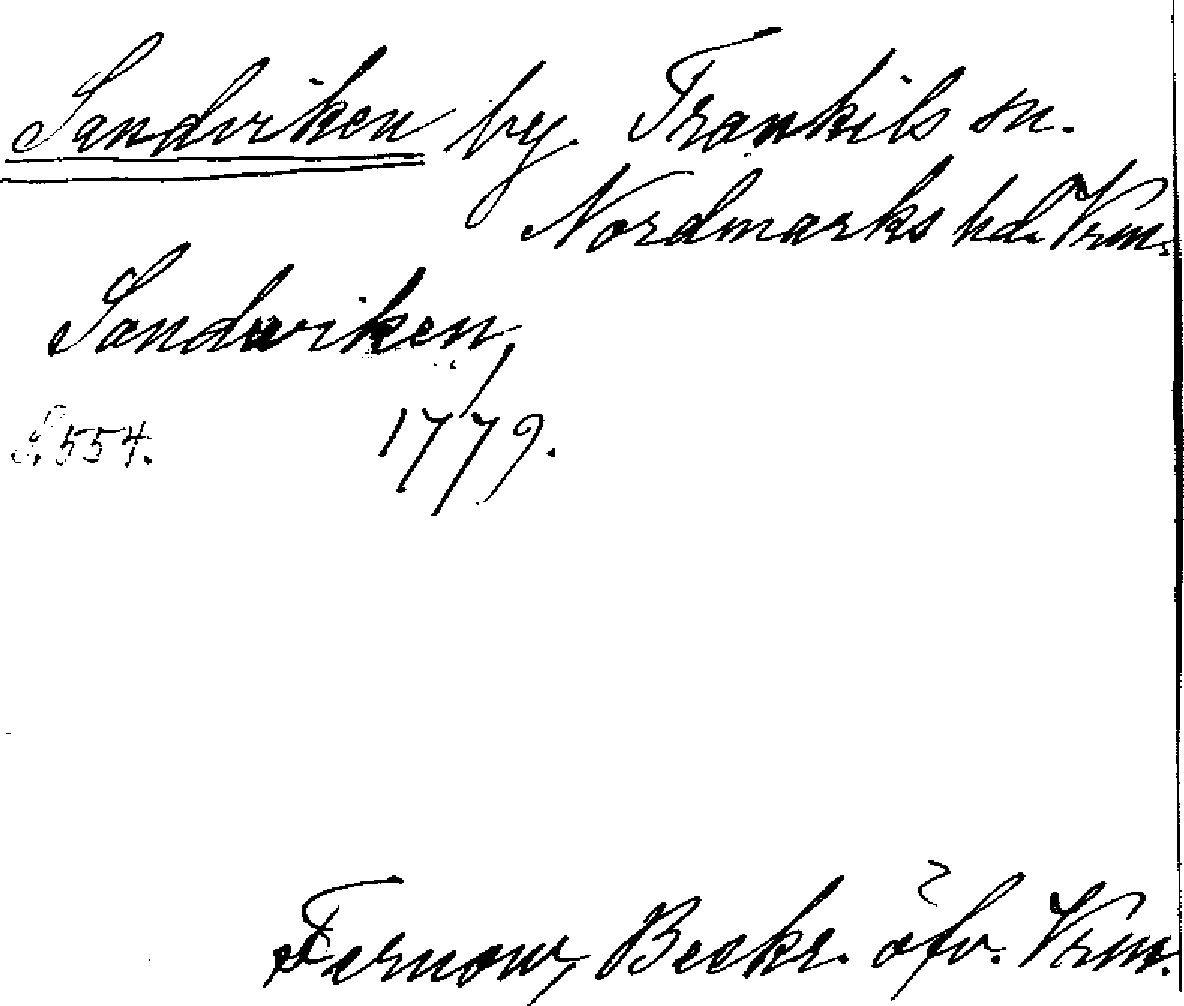 Sandviken by. Trankils sn.
Nordmarks hd. Vrm.
Sandwiken,
S. 554. 1779.
Fernow, Beskr. öfv. Vrm.